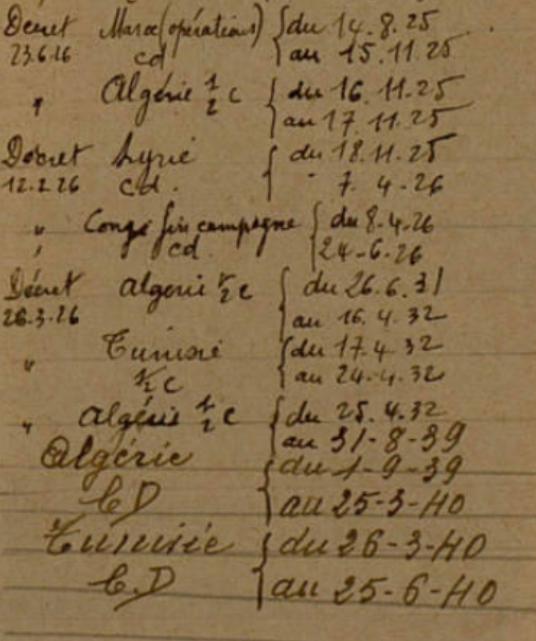 Décret Maroc (opérations) { du 14.8.25
23.6.16 cd au 15.11.25
" Algérie 1/2 c { du 16.11.25
au 17.11.25
Décret Syrie { du 18.11.25
12.2.26 cd. " 7.4-26
" Congé fin campagne { du 8-4-26
" cd. 24-6-26
Décret Algérie 1/2 c { du 26.6.31
26.3.26 au 16.4.32
" Tunisie { du 17.4.32
1/2 c au 24.4.32
" Algérie 1/2 c { du 25.4.32
au 31-8-39
Algérie { du 1-9-39
CD au 25-3-40
Tunisie { du 26-3-40
C.D au 25-6-40